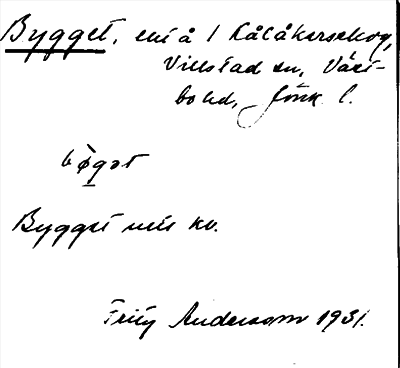 Bygget, en å / Kålåkersskog,
Villstad sn, Väst-
bo hd, Jönk. l.
bø̀gət
Bygget
Frity Andersson 1931.